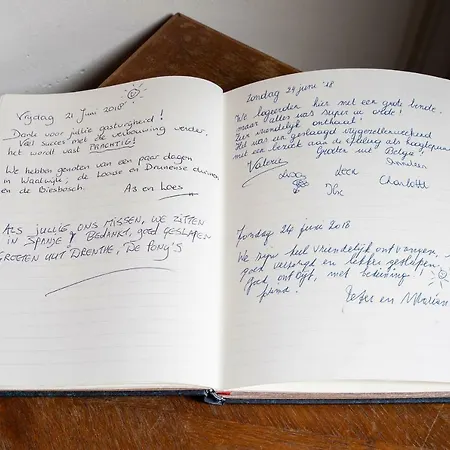 Vrijdag 21 Juni 2018
Dank voor jullie gastvrijheid!
Veel succes met de verbouwing verder,
het wordt vast PRACHTIG!
We hebben genoten van een paar dagen
in Waalwijk, de Loonse en Drunense duinen
en de Biesbosch. As en Loes
ALS JULLIE ONS MISSEN, WE ZITTEN
IN SPANJE! BEDANKT, GOED GESLAPEN
GROETEN UIT DRENTHE, "DE PONY'S
Zondag 24 juni '18
We logeerden hier met een grote bende
maar alles was super in orde!
Zeer vriendelijk onthaal!
Het was een geslaagd vrijgezellenweekend
met een bezoek aan de Efteling als hoogtepunt
Groeten uit België!
Valerie
Charlotte
Zondag 24 juni 2018
We zijn heel vriendelijk ontvangen,
goed verzorgd en lekker geslapen,
goed ontbijt, met bediening!
fijnd!
Peter en Marian